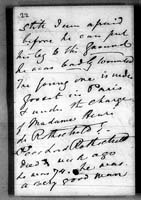 22
still I am afraid
before he can put
his leg to the ground
he was badly wounded
The young one is under
in Paris
& under the charge
of Madame
de Rothschild
Rothschild
died a week ago
he was 74. he was
a very good man